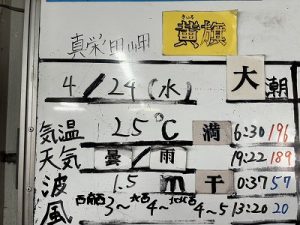 真栄田岬
きいろ
黄旗
4/24(水) 大潮
気温 25℃ 満 6:30 196
天気 曇/雨 19:22 189
波 1.5 m 干 0:37 57
風 西南西 3~ 西 4~ 北北西 4~5 13:20 20